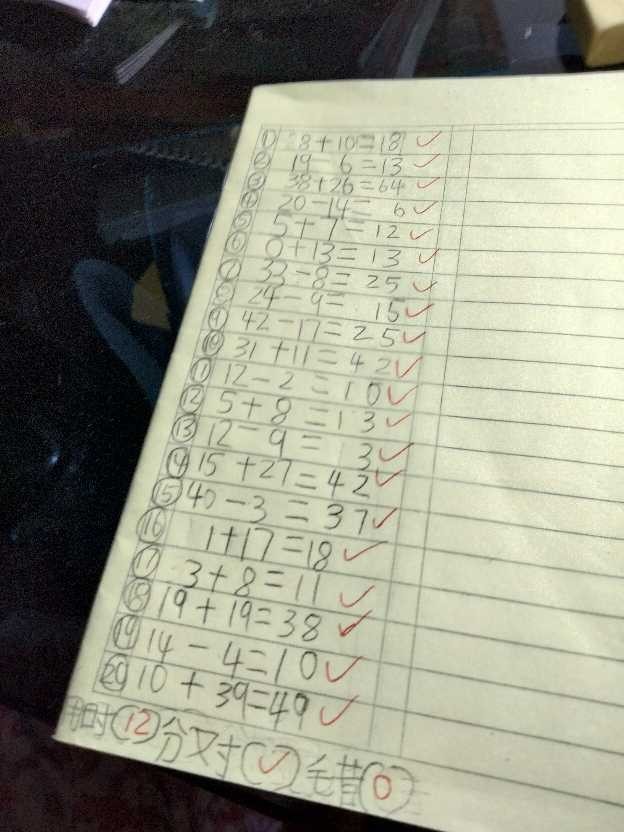 ① 8+10=18 ✓
② 19-6=13 ✓
③ 38+26=64 ✓
④ 20-14=6 ✓
⑤ 5+7=12 ✓
⑥ 0+13=13 ✓
⑦ 33-8=25 ✓
⑧ 24-9=15 ✓
⑨ 42-17=25 ✓
⑩ 31+11=42 ✓
⑪ 12-2=10 ✓
⑫ 5+8=13 ✓
⑬ 12-9=3 ✓
⑭ 15+27=42 ✓
⑮ 40-3=37 ✓
⑯ 1+17=18 ✓
⑰ 3+8=11 ✓
⑱ 19+19=38 ✓
⑲ 14-4=10 ✓
⑳ 10+39=49 ✓
用时(12)分 对(✓) 错(0)